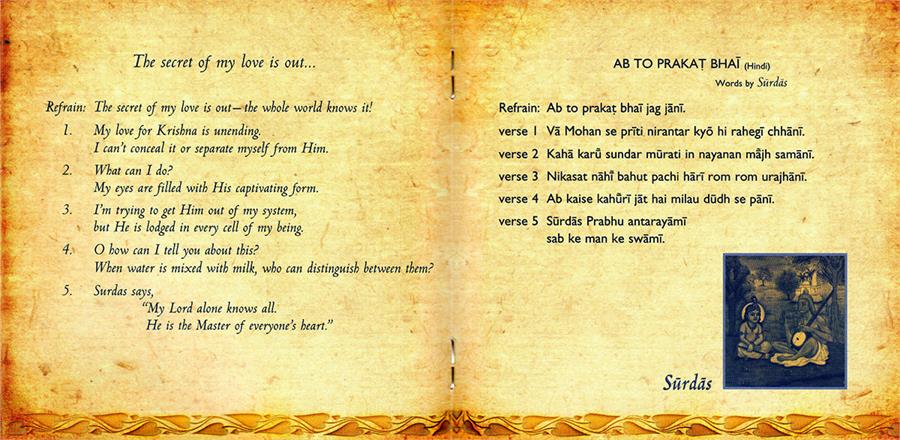 The secret of my love is out...
Refrain: The secret of my love is out—the whole world knows it!
1. My love for Krishna is unending.
I can't conceal it or separate myself from Him.
2. What can I do?
My eyes are filled with His captivating form.
3. I'm trying to get Him out of my system,
but He is lodged in every cell of my being.
4. O how can I tell you about this?
When water is mixed with milk, who can distinguish between them?
5. Surdas says,
"My Lord alone knows all.
He is the Master of everyone's heart."
AB TO PRAKAṬ BHAĪ (Hindi)
Words by Sūrdās
Refrain: Ab to prakaṭ bhaī jag jānī.
verse 1 Vā Mohan se prīti nirantar kyõ hi rahegī chhānī.
verse 2 Kahā karů sundar mūrati in nayanan må̄jh samānī.
verse 3 Nikasat nāhi̊ bahut pachi hārī rom rom urajhānī.
verse 4 Ab kaise kahů̄rī jāt hai milau dūdh se pānī.
verse 5 Sūrdās Prabhu antarayāmī
sab ke man ke swāmī.
Sūrdās